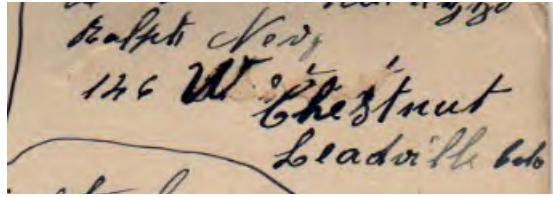 Ralph
146 W. Chestnut
Leadville Colo